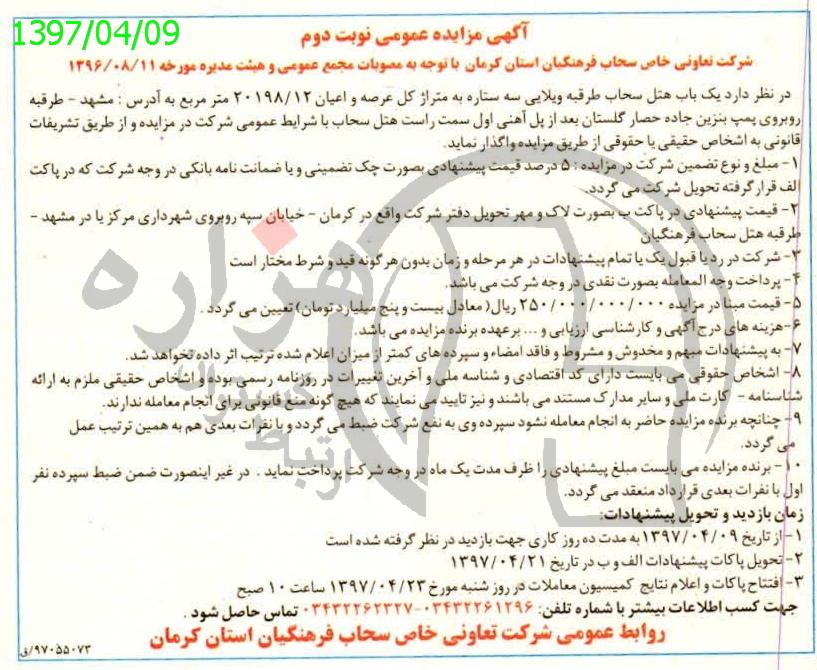 1397/04/09
آگهی مزایده عمومی نوبت دوم
شرکت تعاونی خاص سحاب فرهنگیان استان کرمان با توجه به مصوبات مجمع عمومی و هیئت مدیره مورخه ۱۳۹۶/۰۸/۱۱
در نظر دارد یک باب هتل سحاب طرقبه ویلایی سه ستاره به متراژ کل عرصه و اعیان ۲۰۱۹۸/۱۲ متر مربع به آدرس : مشهد - طرقبه
روبروی پمپ بنزین جاده حصار گلستان بعد از پل آهنی اول سمت راست هتل سحاب با شرایط عمومی شرکت در مزایده و از طریق تشریفات
قانونی به اشخاص حقیقی یا حقوقی از طریق مزایده واگذار نماید.
۱- مبلغ و نوع تضمین شرکت در مزایده : ۵ درصد قیمت پیشنهادی بصورت چک تضمینی و یا ضمانت نامه بانکی در وجه شرکت که در پاکت
الف قرار گرفته تحویل شرکت می گردد.
۲- قیمت پیشنهادی در پاکت ب بصورت لاک و مهر تحویل دفتر شرکت واقع در کرمان - خیابان سپه روبروی شهرداری مرکز یا در مشهد -
طرقبه هتل سحاب فرهنگیان
۳- شرکت در رد یا قبول یک یا تمام پیشنهادات در هر مرحله و زمان بدون هر گونه قید و شرط مختار است
۴- پرداخت وجه المعامله بصورت نقدی در وجه شرکت می باشد.
۵- قیمت مبنا در مزایده ۲۵۰/۰۰۰/۰۰۰/۰۰۰ ریال( معادل بیست و پنج میلیارد تومان) تعیین می گردد .
۶-هزینه های درج آگهی و کارشناسی ارزیابی و ... بر عهده برنده مزایده می باشد.
۷- به پیشنهادات مبهم و مخدوش و مشروط و فاقد امضاء و سپرده های کمتر از میزان اعلام شده ترتیب اثر داده نخواهد شد.
۸- اشخاص حقوقی می بایست دارای کد اقتصادی و شناسه ملی و آخرین تغییرات در روزنامه رسمی بوده و اشخاص حقیقی ملزم به ارائه
شناسنامه - کارت ملی و سایر مدارک مستند می باشند و نیز تایید می نمایند که هیچ گونه منع قانونی برای انجام معامله ندارند.
۹- چنانچه برنده مزایده حاضر به انجام معامله نشود سپرده وی به نفع شرکت ضبط می گردد و با نفرات بعدی هم به همین ترتیب عمل
می گردد.
۱۰- برنده مزایده می بایست مبلغ پیشنهادی را ظرف مدت یک ماه در وجه شرکت پرداخت نماید . در غیر اینصورت ضمن ضبط سپرده نفر
اول با نفرات بعدی قرارداد منعقد می گردد.
زمان بازدید و تحویل پیشنهادات:
۱- از تاریخ ۱۳۹۷/۰۴/۰۹ به مدت ده روز کاری جهت بازدید در نظر گرفته شده است
۲- تحویل پاکات پیشنهادات الف و ب در تاریخ ۱۳۹۷/۰۴/۲۱
۳- افتتاح پاکات و اعلام نتایج کمیسیون معاملات در روز شنبه مورخ ۱۳۹۷/۰۴/۲۳ ساعت ۱۰ صبح
جهت کسب اطلاعات بیشتر با شماره تلفن: ۰۳۴۳۲۲۶۱۲۹۶-۰۳۴۳۲۲۶۲۳۲۷ تماس حاصل شود .
روابط عمومی شرکت تعاونی خاص سحاب فرهنگیان استان کرمان
۹۷۰۵۵۰۷۳/ق
هزاره
ارتباط